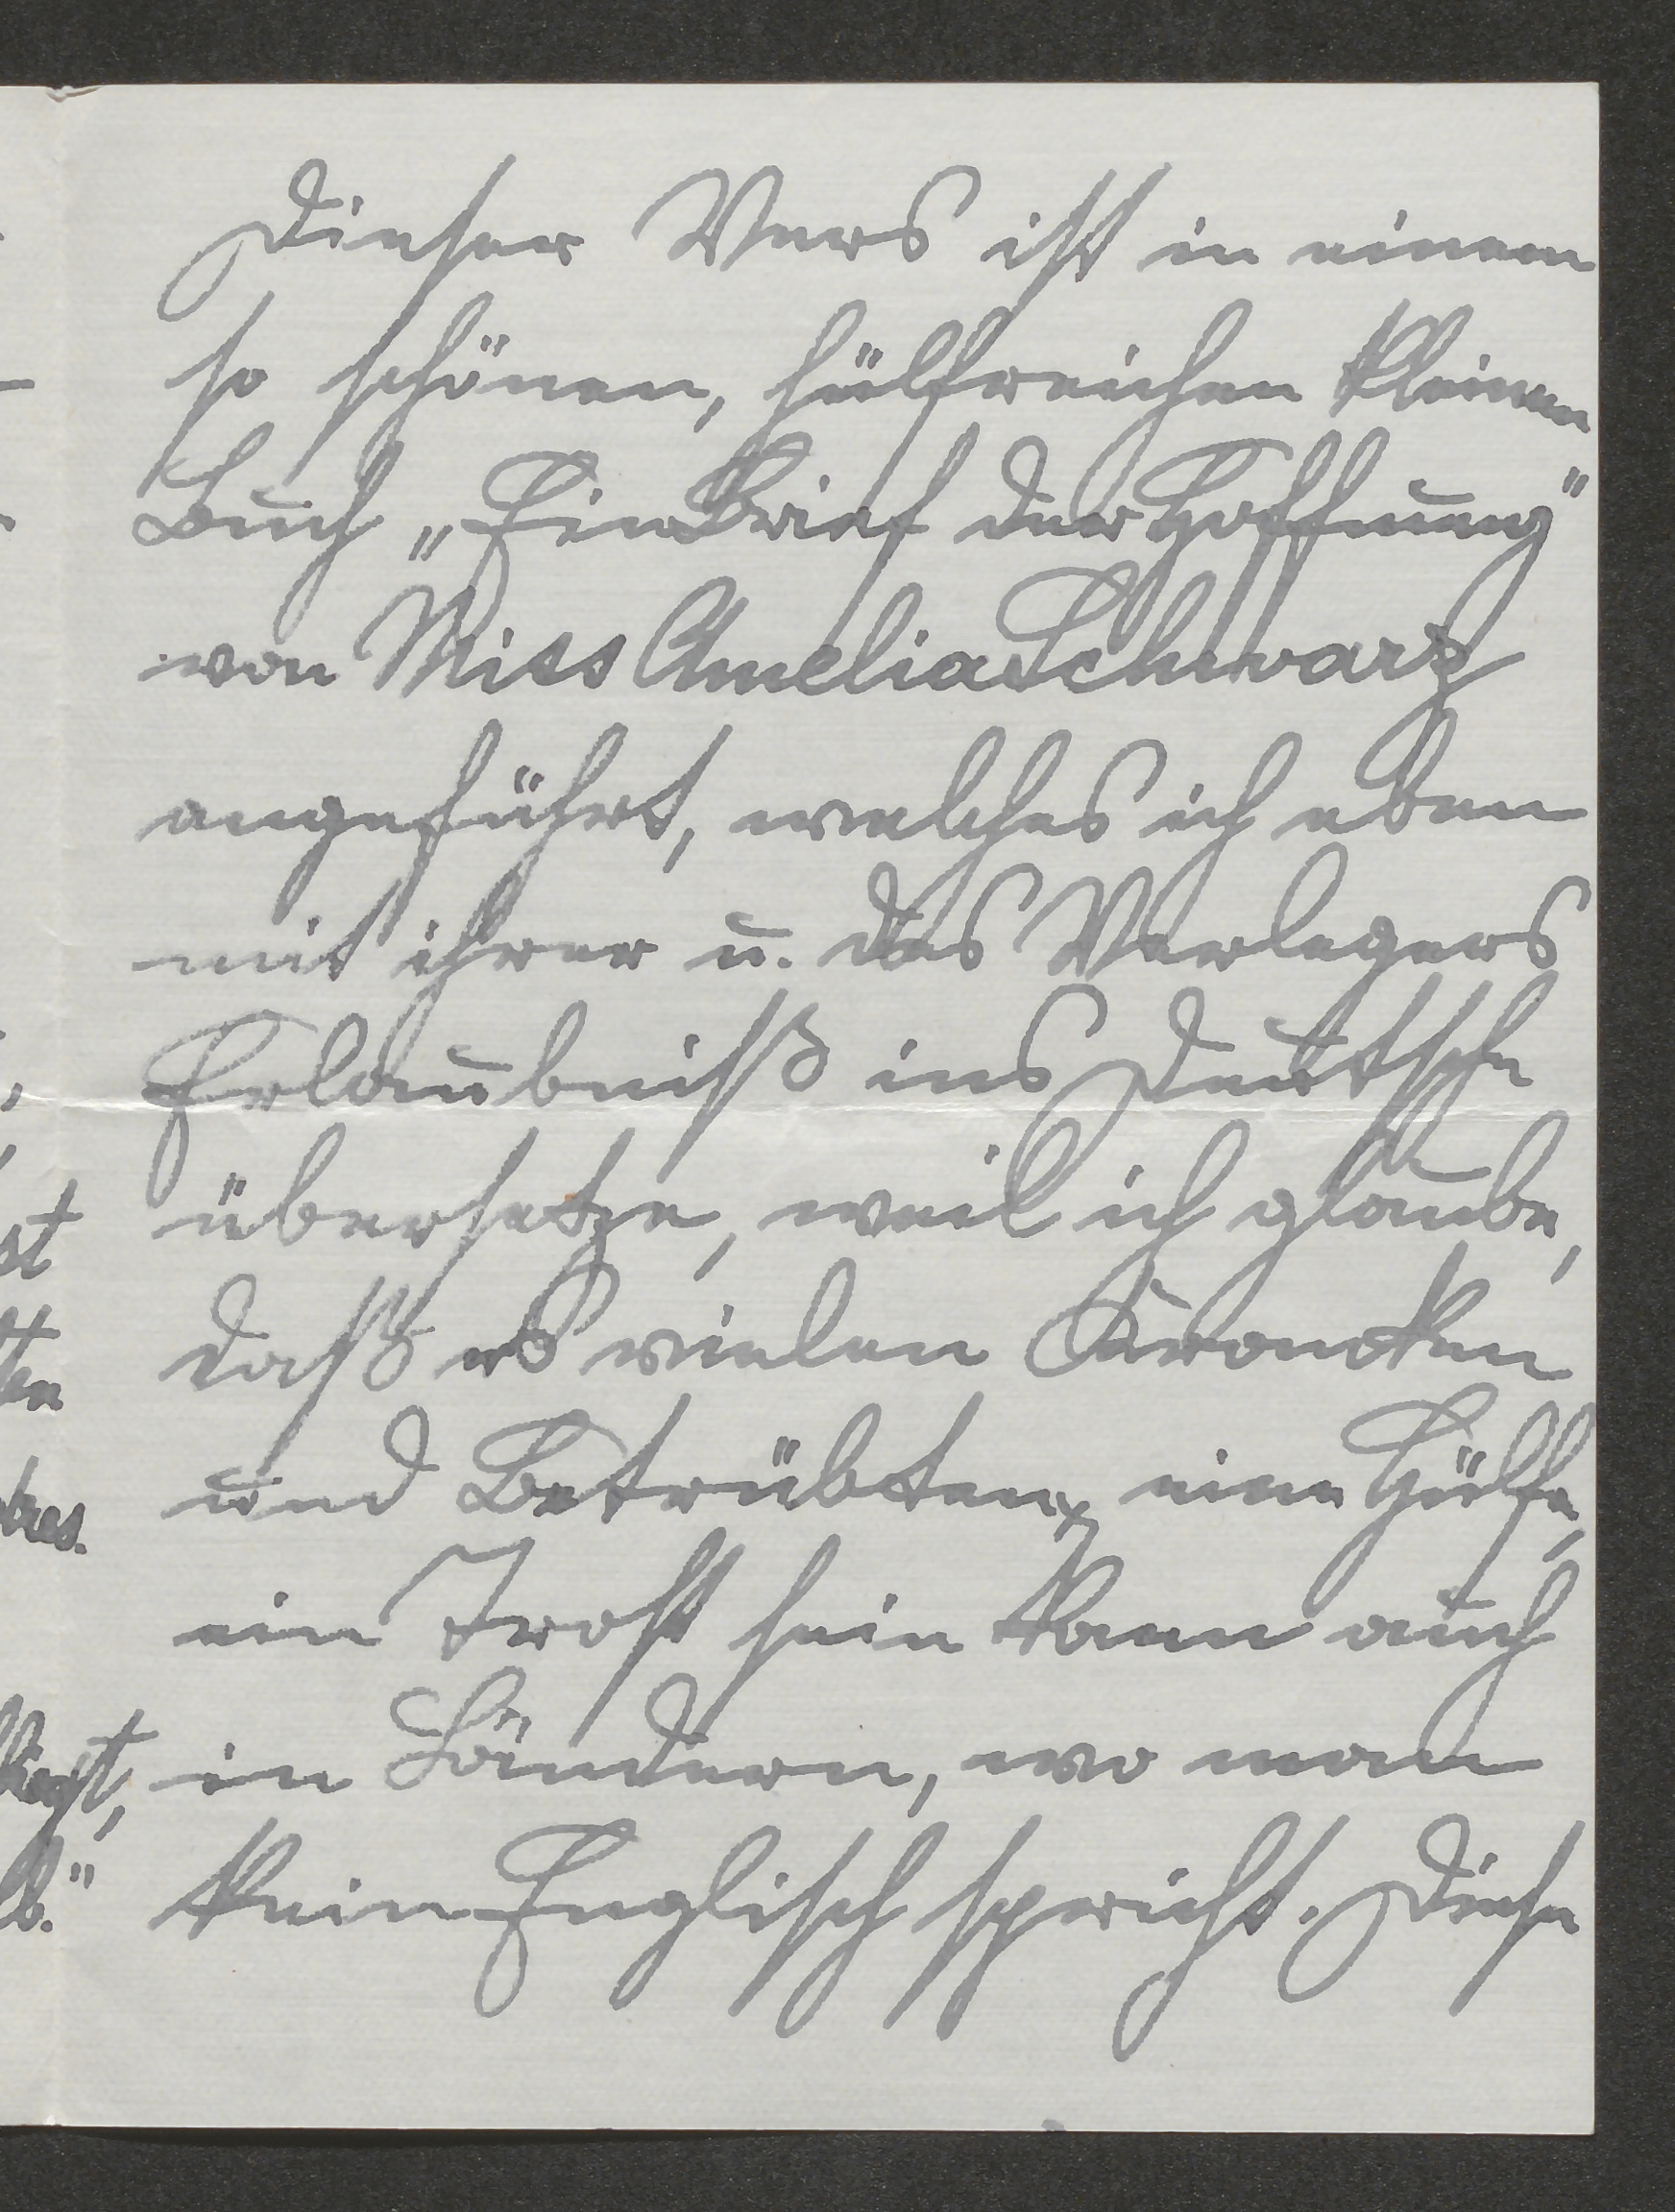 Dieser Vers ist in einem
so schönen, hülfreichen kleinen
Buch „Ein Brief der Hoffnung"
von Miss Amelia Schwarz
angeführt, welches ich eben
mit ihrer u. des Verlegers
Erlaubniß ins Deutsche
übersetze, weil ich glaube,
daß es vielen Kranken
und Betrübten eine Hülfe,
ein Trost sein kann auch
in Ländern, wo man
kein Englisch spricht. Diese